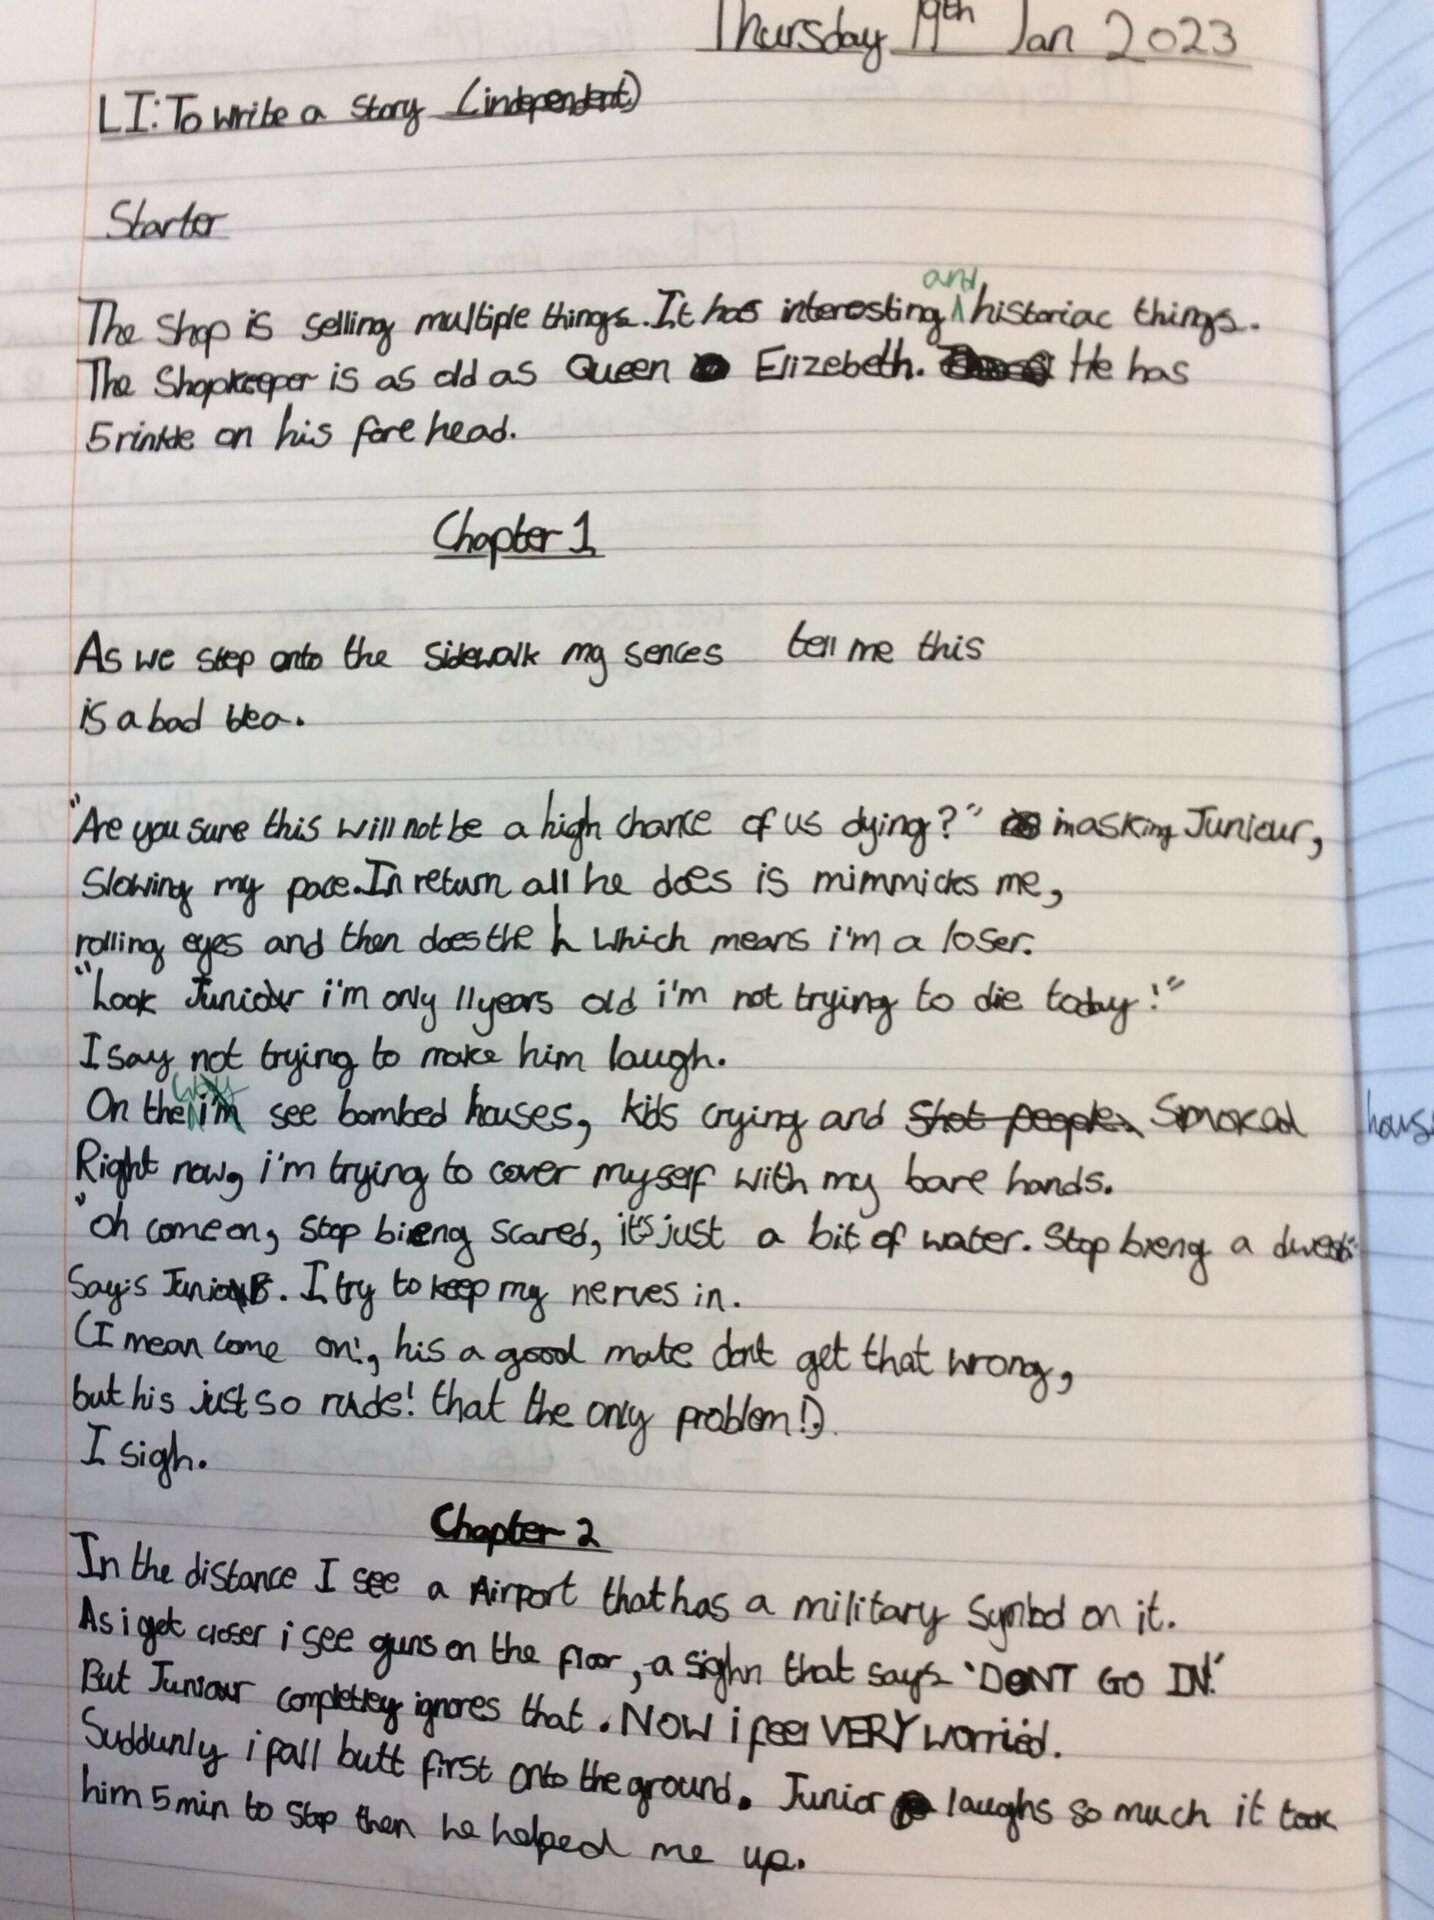 Thursday 19th Jan 2023
LI: To write a story (independent)
Starter
The shop is selling multiple things. It has interesting and historiac things.
The Shopkeeper is as old as Queen Elizebeth. He has
5 rinkle on his fore head.
Chapter 1
As we step onto the sidewalk my sences tell me this
is a bad idea.
"Are you sure this will not be a high chance of us dying?" im asking Junieur,
Slowing my pace. In return all he does is mimmicks me,
rolling eyes and then does the L which means i'm a loser.
"Look Juniour i'm only 11 years old i'm not trying to die today!"
I say not trying to make him laugh.
On the way i'm see bombed houses, kids crying and shot people. Smoked hous
Right now, i'm trying to cover myself with my bare hands.
"oh come on, stop bieng scared, it's just a bit of water. Stop bieng a
Says Junior. I try to keep my nerves in.
(I mean come on!, his a good mate dont get that wrong,
but his just so rude! that the only problem!).
I sigh.
Chapter 2
In the distance I see a Airport that has a military Symbol on it.
As i get closer i see guns on the floor, a sighn that says 'DONT GO IN!'
But Juniour completley ignores that. NOW i feel VERY worried.
Suddunly i fall butt first onto the ground. Junior laughs so much it took
him 5 min to stop then he helped me up.